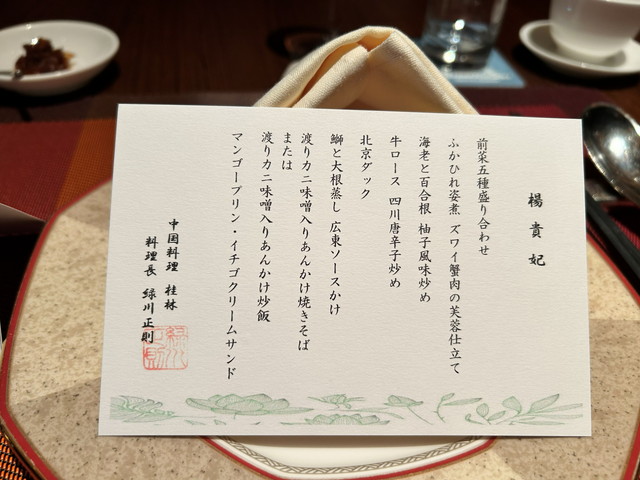 楊貴妃
前菜五種盛り合わせ
ふかひれ姿煮 ズワイ蟹肉の芙蓉仕立て
海老と百合根 柚子風味炒め
牛ロース 四川唐辛子炒め
北京ダック
鰤と大根蒸し 広東ソースかけ
渡りカニ味噌入りあんかけ焼きそば
または
渡りカニ味噌入りあんかけ炒飯
マンゴープリン・イチゴクリームサンド
中国料理 桂林
料理長 緑川正則